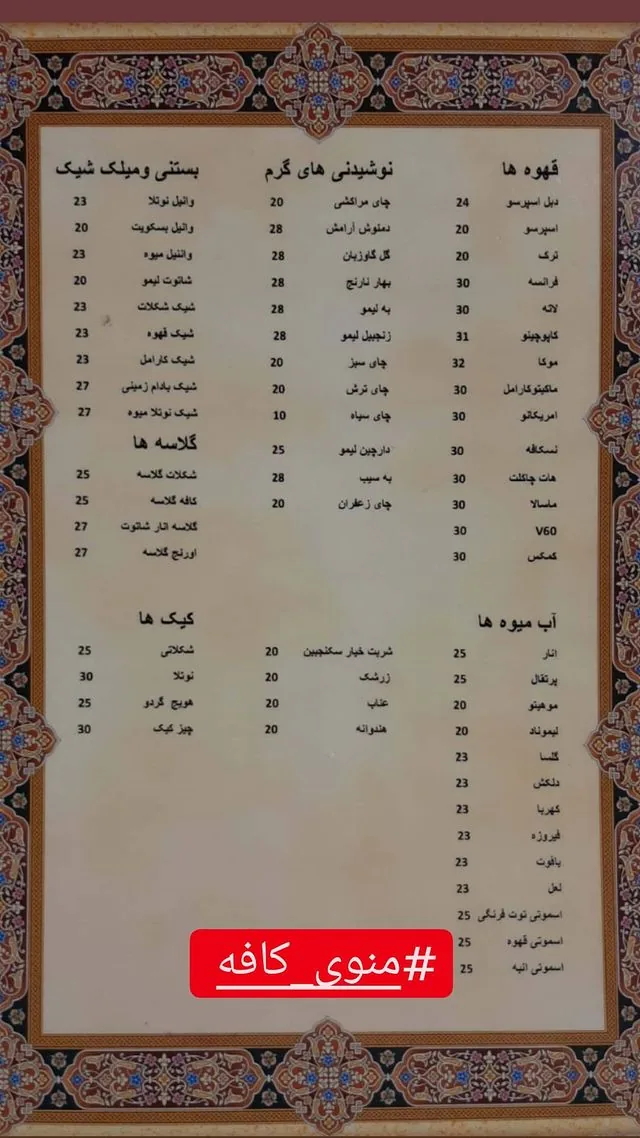 قهوه ها
دبل اسپرسو 24
اسپرسو 20
ترک 20
فرانسه 30
لاته 30
کاپوچینو 31
موکا 32
ماکیتوکارامل 30
امریکانو 30
نسکافه 30
هات چاکلت 30
ماسالا 30
V60 30
کمکس 30
نوشیدنی های گرم
چای مراکشی 20
دمنوش آرامش 28
گل گاوزبان 28
بهار نارنج 28
به لیمو 28
زنجبیل لیمو 28
چای سبز 20
چای ترش 20
چای سیاه 10
دارچین لیمو 25
به سیب 28
چای زعفران 20
بستنی ومیلک شیک
وانیل نوتلا 23
وانیل بسکویت 20
وانیل میوه 23
شاتوت لیمو 20
شیک شکلات 23
شیک قهوه 23
شیک کارامل 23
شیک بادام زمینی 27
شیک نوتلا میوه 27
گلاسه ها
شکلات گلاسه 25
کافه گلاسه 25
گلاسه انار شاتوت 27
اورنج گلاسه 27
آب میوه ها
انار 25
پرتقال 25
موهیتو 20
لیموناد 20
گلسا 23
دلکش 23
کهربا 23
فیروزه 23
یاقوت 23
لعل 23
اسموتی توت فرنگی 25
اسموتی قهوه 25
اسموتی انبه 25
شربت خیار سکنجبین 20
زرشک 20
عناب 20
هندوانه 20
کیک ها
شکلاتی 25
نوتلا 30
هویج گردو 25
چیز کیک 30
#منوی_کافه